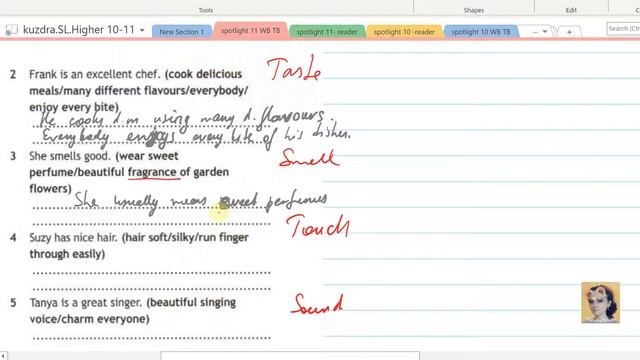 Tools
Shapes
Edit
kuzdra.SL.Higher 10-11
New Section 1
spotlight 11 WB TB
spotlight 11- reader
spotlight 10 -reader
spotlight 10 WB TB
Search (Ctrl
2 Frank is an excellent chef. (cook delicious
meals/many different flavours/everybody/
enjoy every bite)
Taste
He cooks d.m using many d. flavours.
Everybody enjoys every bite of his dishes.
3 She smells good. (wear sweet
perfume/beautiful fragrance of garden
flowers)
Smell
She usually wears sweet perfumes
4 Suzy has nice hair. (hair soft/silky/run finger
through easily)
Touch
5 Tanya is a great singer. (beautiful singing
voice/charm everyone)
Sound